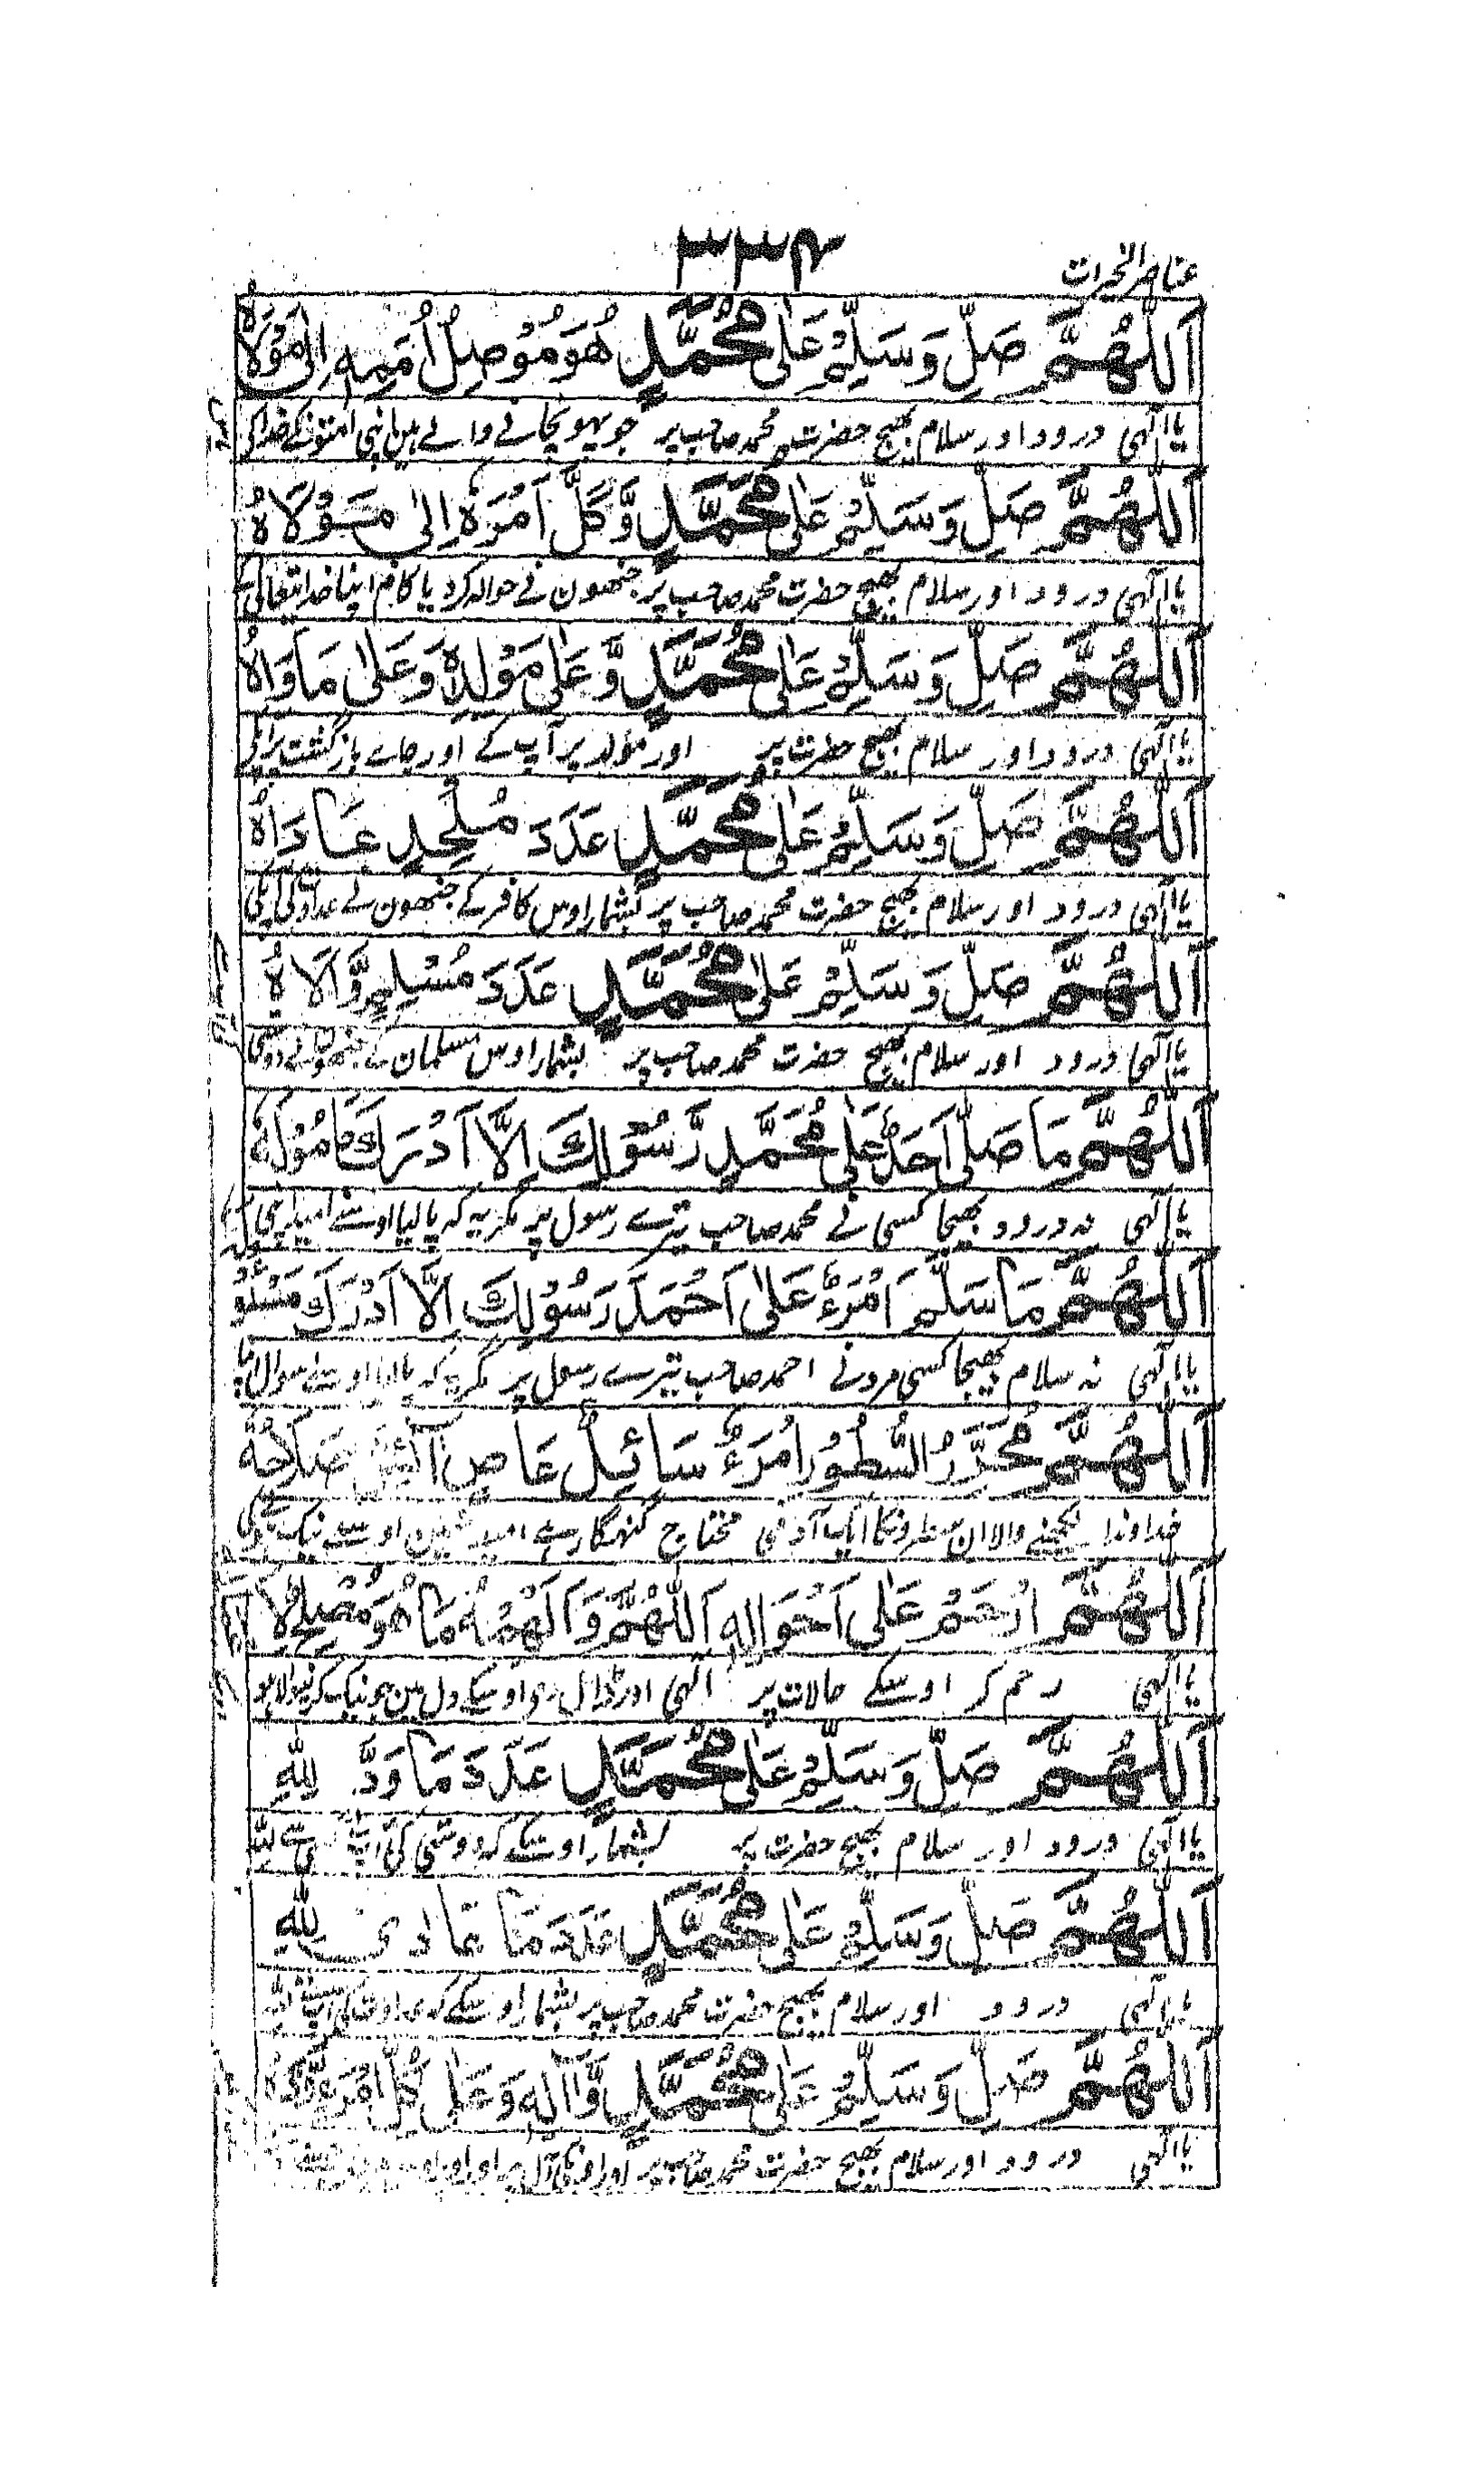 عناصر الخیرات
۳۳۴
اَللّٰهُمَّ صَلِّ وَسَلِّمْ عَلٰى مُحَمَّدٍ هُوَ مُوْصِلُ اُمَمِهٖ اِلٰى مَوْلَاهُ
یا الٰہی درود اور سلام بھیج حضرت محمد صاحب پر جو پہونچانے والے ہین اپنی امتونکے خدا کی
اَللّٰهُمَّ صَلِّ وَسَلِّمْ عَلٰى مُحَمَّدٍ وَّكَّلَ اَمْرَهٗ اِلٰى مَوْلَاهُ
یا الٰہی درود اور سلام بھیج حضرت محمد صاحب پر جنھون نے حوالہ کردیا کام اپنا خدا تعالیٰ
اَللّٰهُمَّ صَلِّ وَسَلِّمْ عَلٰى مُحَمَّدٍ وَّعَلٰى مَوْلِدِهٖ وَعَلٰى مَاْوَاهُ
یا الٰہی درود اور سلام بھیج حضرت پر اور مولد پر آپ کے اور جاے بازگشت پر آپکی
اَللّٰهُمَّ صَلِّ وَسَلِّمْ عَلٰى مُحَمَّدٍ عَدَدَ مُلْحِدٍ عَادَاهُ
یا الٰہی درود اور سلام بھیج حضرت محمد صاحب پر بشمار اوس کافر کے جنھون نے عداوت کی آپکی
اَللّٰهُمَّ صَلِّ وَسَلِّمْ عَلٰى مُحَمَّدٍ عَدَدَ مُسْلِمٍ وَّالَاهُ
یا الٰہی درود اور سلام بھیج حضرت محمد صاحب پر بشمار اوس مسلمان کے جنھون نے دوستی
اَللّٰهُمَّ مَا صَلّٰى اَحَدٌ عَلٰى مُحَمَّدٍ رَّسُوْلِكَ اِلَّا اَدْرَكَ مَامُوْلَهٗ
یا الٰہی نہ درود بھیجا کسی نے محمد صاحب تیرے رسول پر مگر یہ کہ پالیا اوسنے امید اپنی
اَللّٰهُمَّ مَا سَلَّمَ امْرَءٌ عَلٰى اَحْمَدَ رَسُوْلِكَ اِلَّا اَدْرَكَ مَسْئُوْلَهٗ
یا الٰہی نہ سلام بھیجا کسی مرد نے احمد صاحب تیرے رسول پر مگر یہ کہ پالیا اوسنے سوال اپنا
اَللّٰهُمَّ مُحَرِّرُ السُّطُوْرِ امْرَءٌ سَائِلٌ عَاصٍ صَلَاحُهٗ
خداوندا لکھنے والا ان سطرونکا ایک آدمی محتاج گنہگار ہے اوسے نیک
اَللّٰهُمَّ ارْحَمْ عَلٰى اَحْوَالِهٖ اَللّٰهُمَّ وَاَلْهِمْهُ مَا هُوَ مُصْلِحٌ
یا الٰہی رحم کر اوسکے حالات پر الٰہی اور ڈال دی اوسکے دل مین جو نیک کرنیوالا ہو
اَللّٰهُمَّ صَلِّ وَسَلِّمْ عَلٰى مُحَمَّدٍ عَدَدَ مَا وَدَّ لِلّٰهِ
یا الٰہی درود اور سلام بھیج حضرت پر بشمار اوسکے کہ دوستی کی
اَللّٰهُمَّ صَلِّ وَسَلِّمْ عَلٰى مُحَمَّدٍ عَدَدَ مَا عَادٰى لِلّٰهِ
یا الٰہی درود اور سلام بھیج حضرت محمد صاحب پر بشمار اوسکے کہ عداوت کی
اَللّٰهُمَّ صَلِّ وَسَلِّمْ عَلٰى مُحَمَّدٍ وَّاٰلِهٖ وَعَلٰى كُلِّ
یا الٰہی درود اور سلام بھیج حضرت محمد صاحب پر اور اونکی آل پر